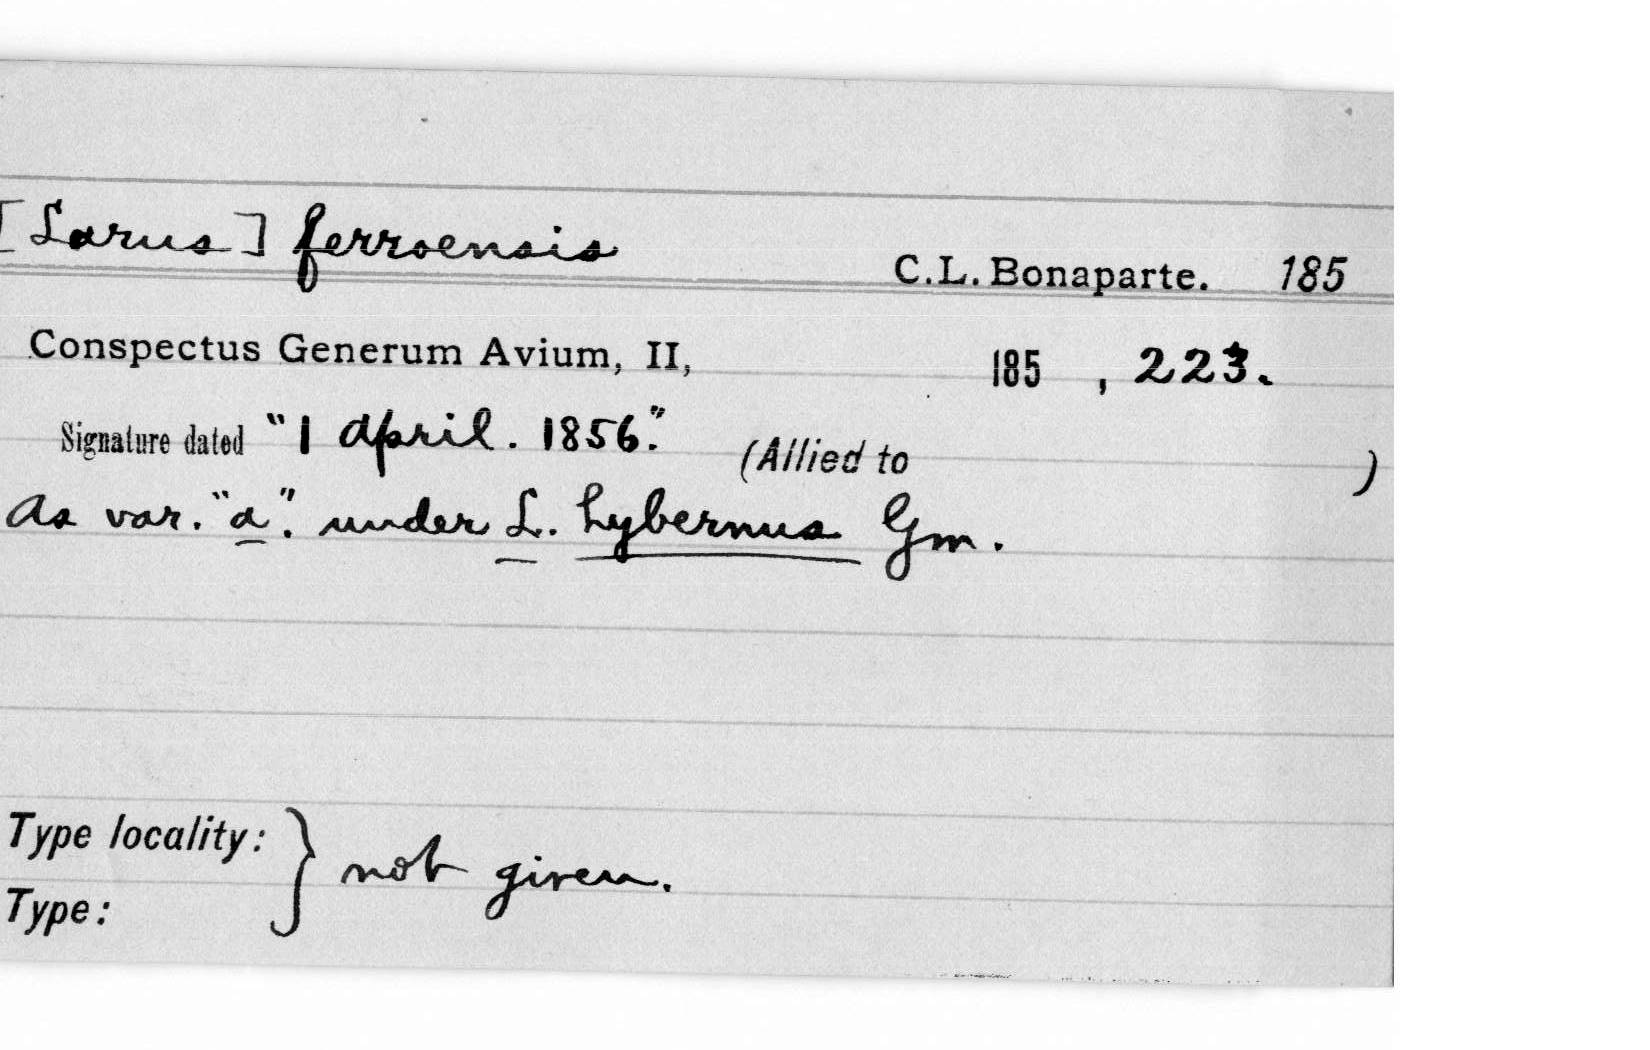 [Larus] ferroensis
C.L. Bonaparte. 185
Conspectus Generum Avium, II, 185 , 223.
Signature dated "1 April. 1856." (Allied to )
As var. "a". under L. hybernus Gm.
Type locality: } not given.
Type: